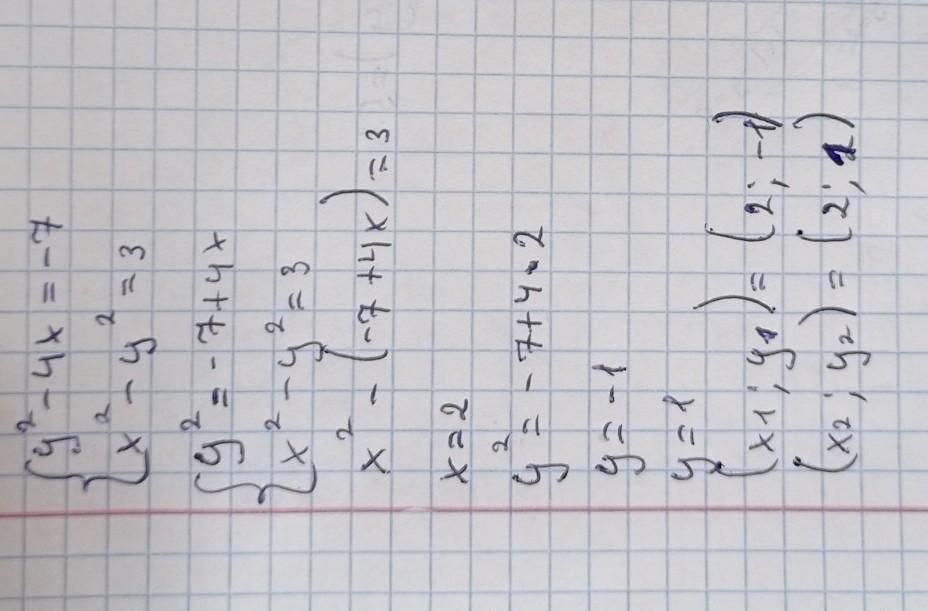 y² - 4x = -7
x² - y² = 3
y² = -7+4x
x² - y² = 3
x² - (-7+4x) = 3
x=2
y² = -7+4·2
y=-1
y=1
(x1; y1) = (2; -1)
(x2; y2) = (2; 1)